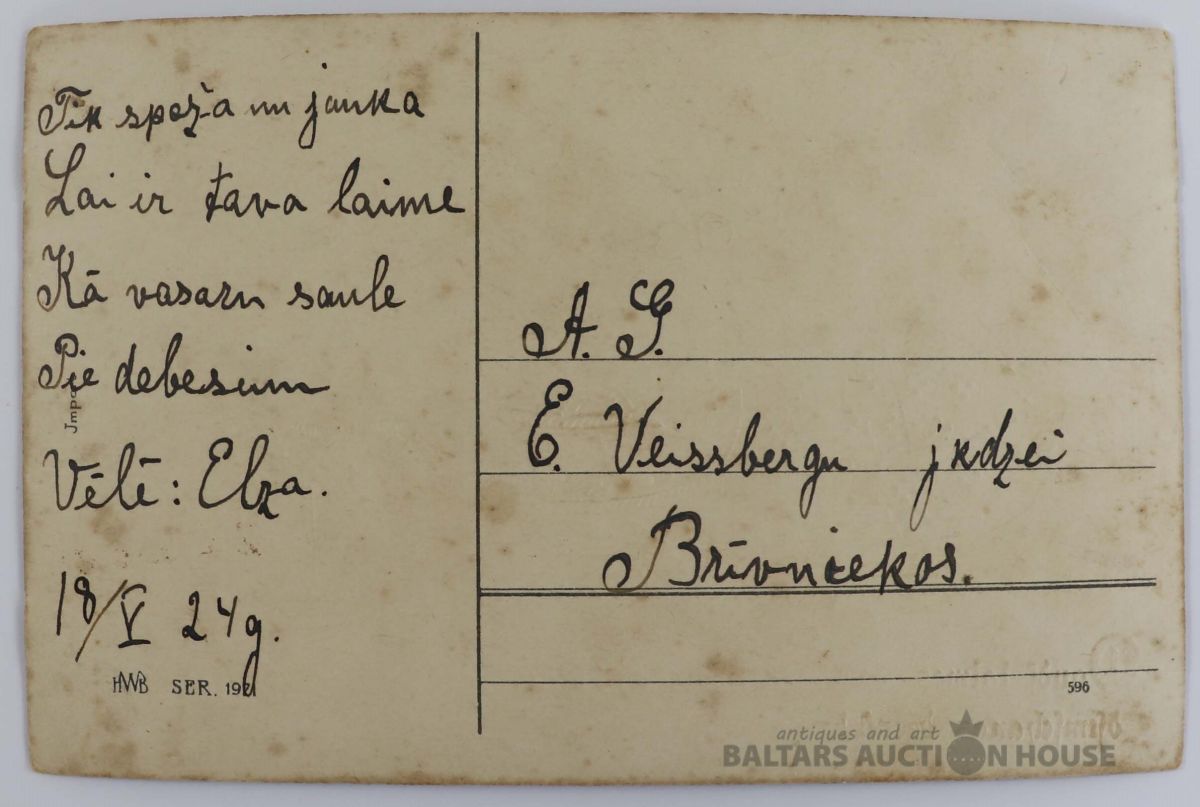 Tik spoža un jauka
Lai ir tava laime
Kā vasaru saule
Pie debesim
Vēlē: Elza.
18/V 24g.
HWB SER. 1921
Jmpo
A. G.
E. Veissbergu jkdzei
Brīvniekos.
596
antiques and art
BALTARS AUCTION HOUSE